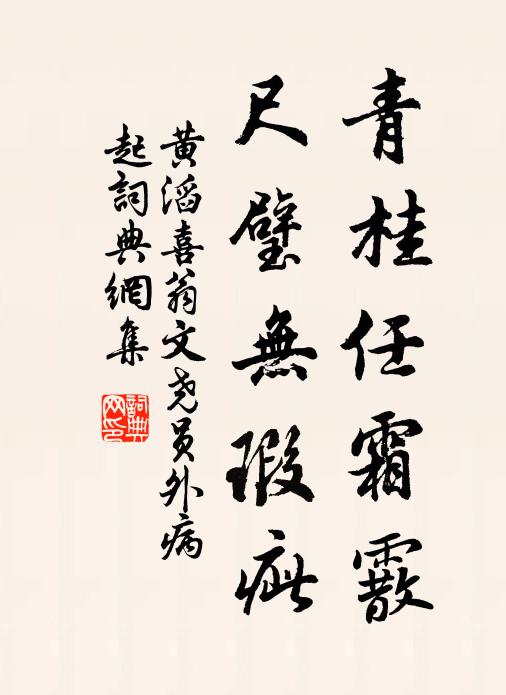 青桂任霜霰
尺璧無瑕疵
黄滔喜翁文尧员外病
起詞典網集
詞典
网印